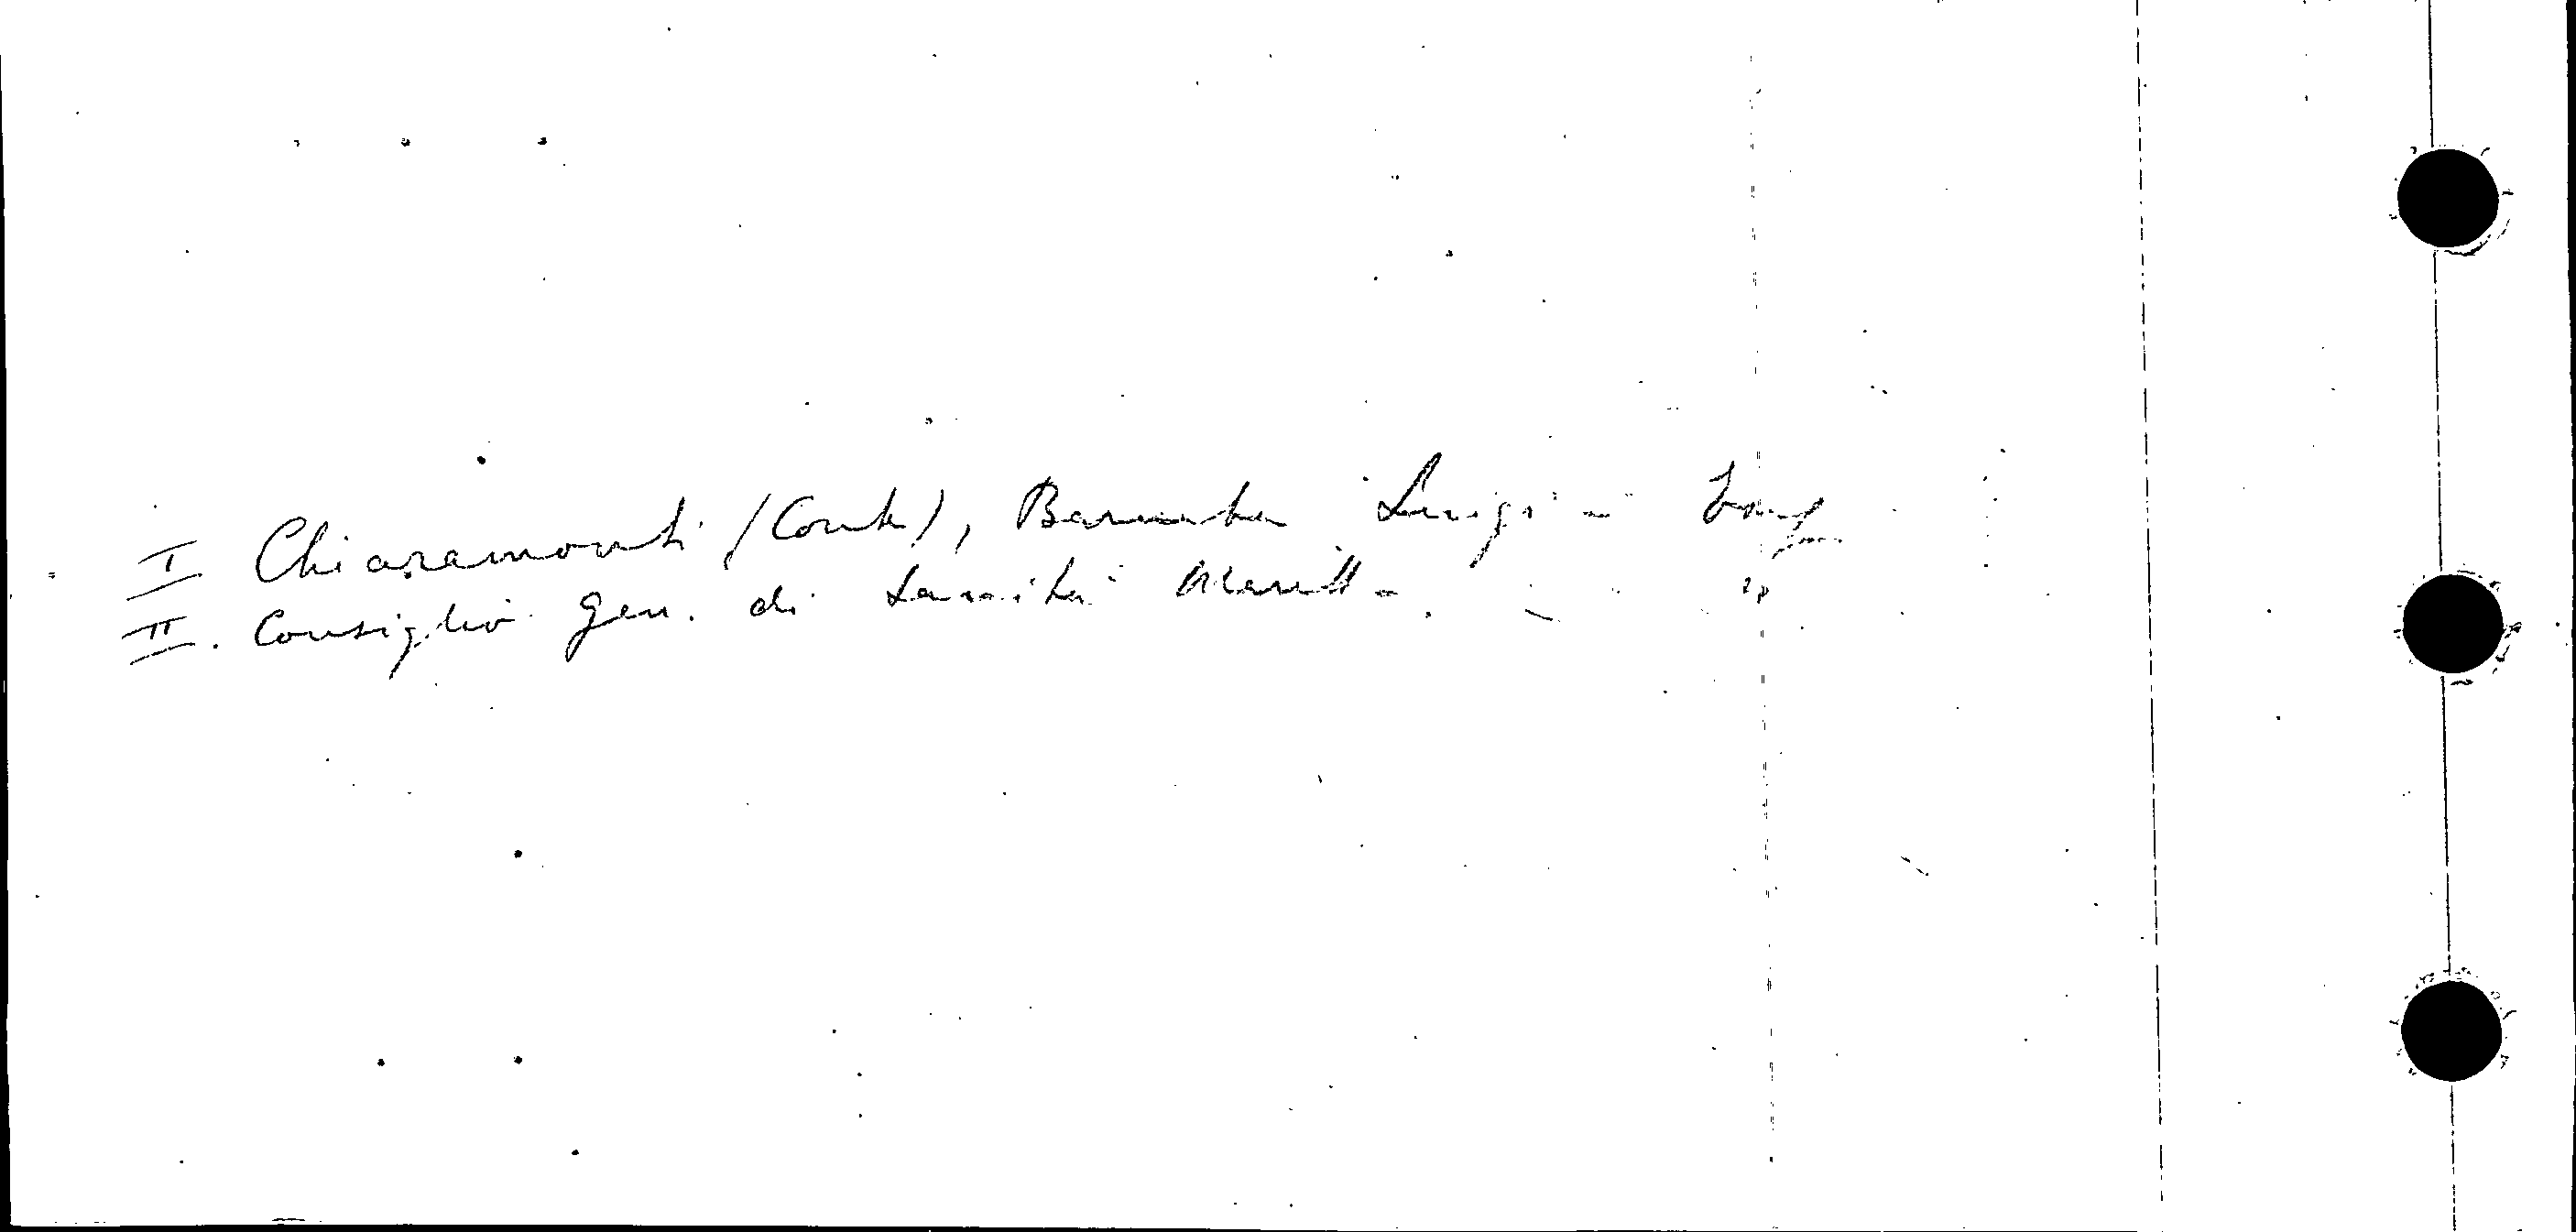 I Chiaramonti (Conte), Barnaba Luigi -
II. Consiglio gen. di Sanità Maritt -. - "